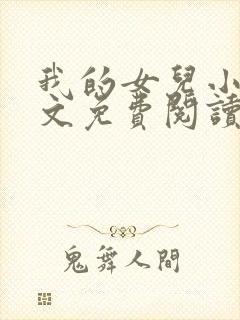 我的女兒小
文免費閱讀
鬼舞人間